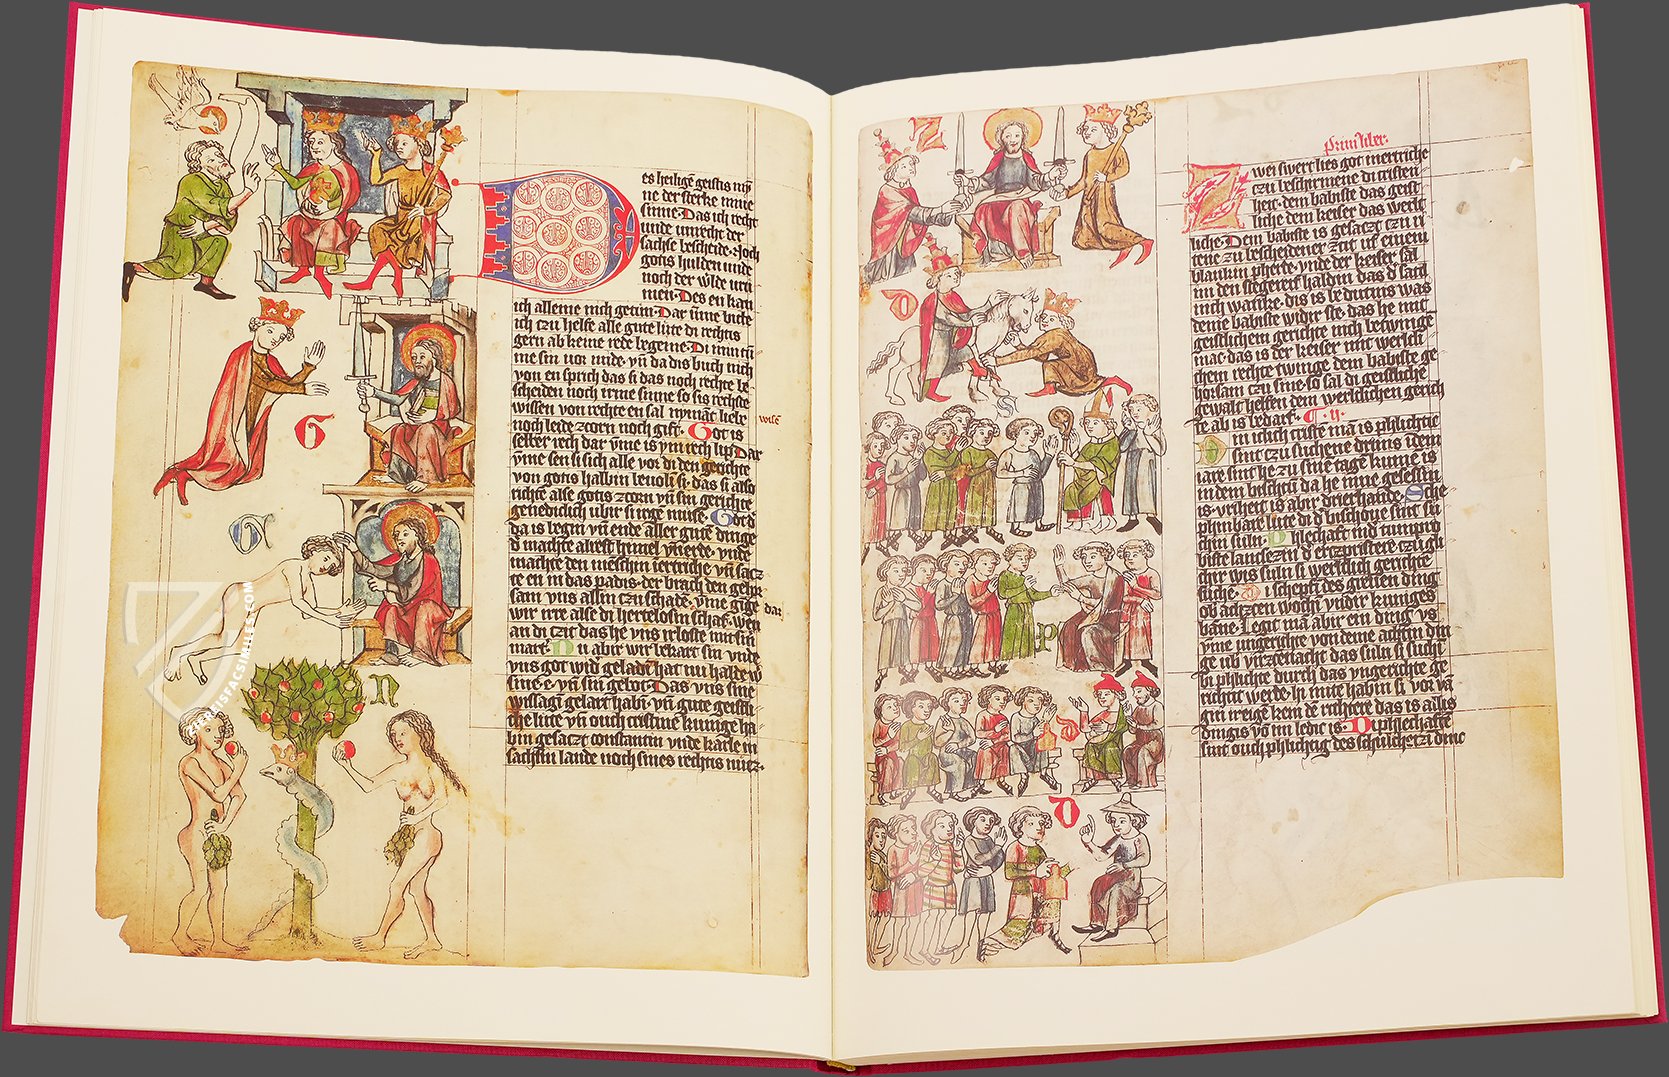 es heiligē geistis mỹ
ne der sterke mine
sinne · Das ich recht
unde unrecht der
sachse bescheide · Noch
gotis hulden unde
noch der
men · Des en kan
ich alleine nich getun · Dar ūme bitte
ich czu helfe alle gute lute di rechtis
gern ab keine rede begeine · Di
me sin uor mide · vn̄ da dis buch nich
von en sprich das si das noch rechte be
scheiden noch irme sinne so sis rechste
wissen von rechte en sal nyman̄c liebe
wisē
noch leide zcorn noch gift · Got is
selber rech dar v̄me is ym rech lip Dar
v̄me sen si sich alle vor di den gerichte
von gotis halbin beuoln si · das si also
richtē alse gotis zcorn vn̄ sin gerichte
genediclich ubir si irge muse · Got d
da is begin vn̄ ende aller gutē dinge
d machte alrest himel vn̄ erde · vnde
machte den mēschin in ertriche vn̄ sacz
te en in das padis · der brach den gehor
sam vns allin czu schade · v̄me gīge
dar
wir irre alse di hertelosin schaf · wen
an di czit das he vns irloste mit sin
mart · Nu abir wir bekart sin vnde
vns got wid geladen hat nu halde w
sine · e · vn̄ sin gebot · Das vns sine
wissagi gelart habī · vn̄ gute geistli
che lute vn̄ ouch cristine kunige ha
bin gesaczt constantin vnde karle in
sachsin lande noch sines rechtis
G
G
N
Z
D
S
P
D
D
Primꝰ liber ·
Zwei swert lies got in ertriche
czu beschirmene di cristen
heit · dem babiste das geist
liche dem keiser das werlt
liche · Dem babiste is gesaczt czu ri
tene zu bescheidener zcit uf eineme
blankin pherde · vnde der keiser sal
im den stegereif haldin das d satil
nich wancke · dis is bedutnis was
deme babiste widir ste · das he mit
geistlichem gerichte nich betwinge
mac · das is der keiser mit werltli
chem rechte twinge dem babiste ge
horsam czu sine · so sal di geistliche
gewalt helfen dem werldichen gerich
te ab is bedarf · ¶ · ii ·
iclich cristē mā is phlichtic
sint czu suchene drīns idem
iare sint he zu sine tagē kumē is
in dem bischtū da he inne gesessin
is · vriheit is abir drierhande · Sche
phinbare lute di d bischoue sint su
chin suln · Phlechaft
di erczpristere czu gli
chir wis suln si werltlich gerichte
suche · Di schepfē des greuen ding
ob achczen wochī vndir kuniges
bāne · Legit mā abir ein ding us
v̄me ungerichte von deme achtin din
ge ubir virzcenacht das suln si sucht
di phlichte durch das vngerichte ge
richtit werde · hi mite habin si vor vā
gin ir eigē kein de richtere das is allis
dingis vō im ledic is · Di phlechafte
sint ouch phlichtig des schultheiczī dinc
ZIEREISFACSIMILES.COM